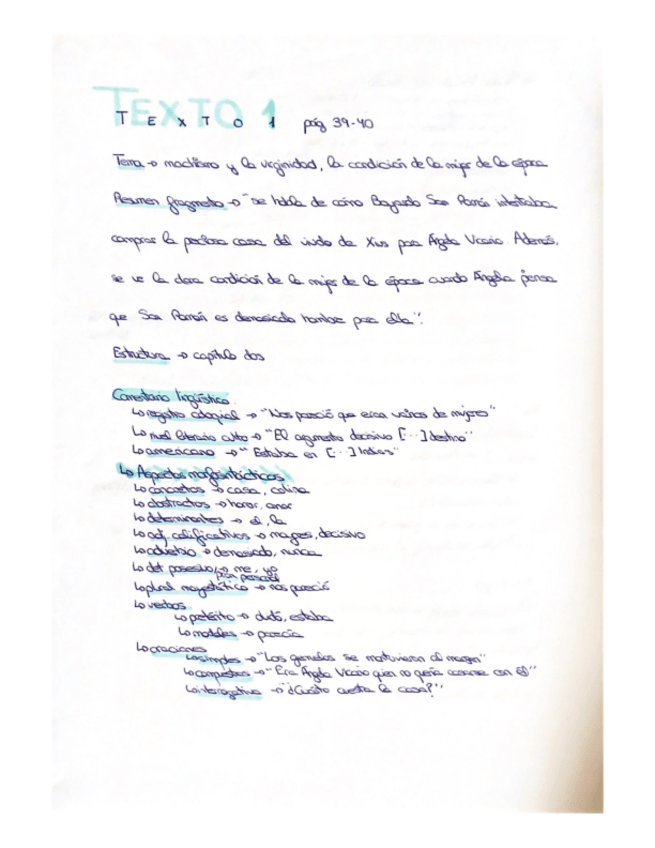 TEXTO 1
TEXTO 1 pág 39-40
Tema → machismo y la virginidad, la condición de la mujer de la época
Resumen fragmento → "se habla de cómo Bayardo San Román intentaba
comprar la preciosa casa del viudo de Xius para Ángela Vicario. Además,
se ve la clara condición de la mujer de la época cuando Ángela piensa
que San Román es demasiado hombre para ella".
Estructura → capítulo dos
Comentario lingüístico
↳ registro coloquial → "Nos pareció que eran vainas de mujeres"
↳ nivel literario culto → "El argumento decisivo [...] destino"
↳ americano → "Estaba en [...] Indias"
↳ Aspectos morfosintácticos
↳ concretos → casa, colina
↳ abstractos → honor, amor
↳ determinantes → el, la
↳ adj. calificativos → magnes, decisivo
↳ adverbio → demasiado, nunca
↳ det posesivo → me, yo
pron personal
↳ plural mayestático → nos pareció
↳ verbos
↳ pretérito → dudó, estaba
↳ modales → parecía
↳ oraciones
↳ simples → "Los gemelos se mantuvieron al margen"
↳ compuestas → "Era Ángela Vicario quien no quería casarse con él"
↳ interrogativa → "¿Cuánto cuesta la casa?"